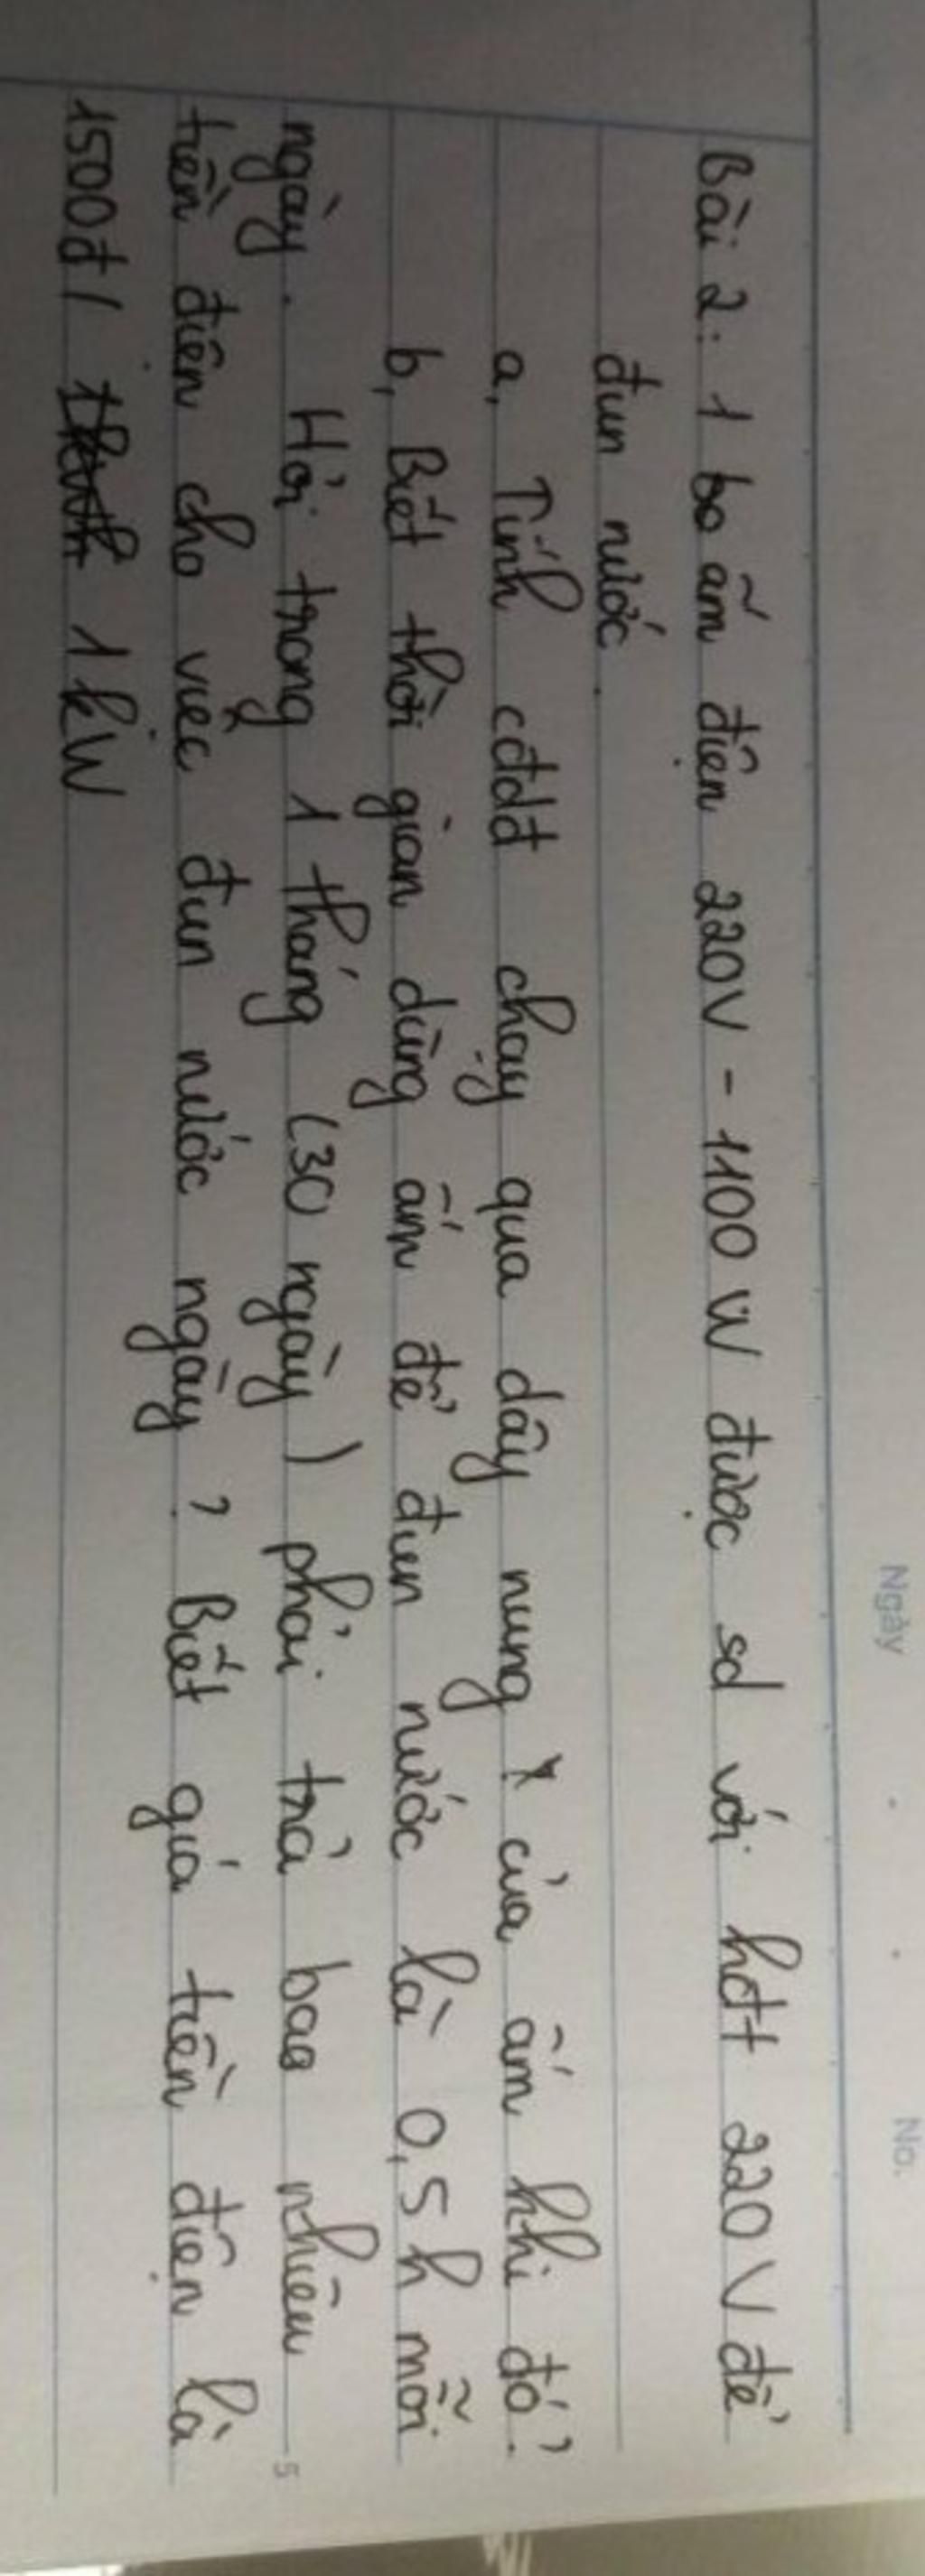 Ngày No.
Bài 2: 1 bo ấm điện 220V - 1100 W được sd với hđt 220V để
đun nước.
a, Tính cđdđ chạy qua dây nung của ấm khi đó?
b, Biết thời gian dùng ấm để đun nước là 0,5h mỗi
ngày. Hỏi trong 1 tháng (30 ngày) phải trả bao nhiêu
tiền điện cho việc đun nước ngày? Biết giá tiền điện là
1500đ/ 1kW
5